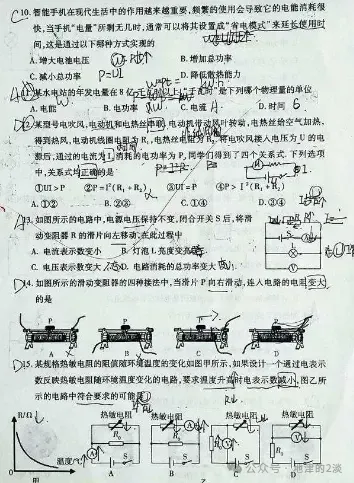 10.智能手机在现代生活中的作用越来越重要,频繁的使用会导致它的电能消耗很
快,当手机“电量”所剩无几时,通常可以将其设置成“省电模式”来延长使用时
间,这是通过以下哪种方式实现的
A.增大电池电压 B.增加总功率
C.减小总功率 P=UI D.降低散热能力
11.某水电站的年发电量在8亿 “千瓦时”是下列哪个物理量的单位
A.电能 B.电功率 C.电流 D.时间
12.某型号电吹风,电动机和电热丝串联,电动机带动风叶转动,电热丝给空气加热,
得到热风,电动机线圈电阻为R₁,电热丝电阻为R₂,将电吹风接入电压为U的电
源后,通过的电流为I,消耗的电功率为P,同学们得到了四个关系式.下列选项
中,关系式均正确的是
①UI>P ②P=I²(R₁+R₂) ③UI=P ④P>I²(R₁+R₂)
A.①② B.②③ C.①④ D.③④
13.如图所示的电路中,电源电压保持不变,闭合开关S后,将滑
动变阻器R的滑片向左移动,在此过程中
A.电流表示数变小 B.灯泡L亮度变亮
C.电压表示数变大 D.电路消耗的总功率变大
14.如图所示的滑动变阻器的四种接法中,当滑片P向右滑动,连入电路的电阻变大
的是
P P P P
A B C D
15.某规格热敏电阻的阻值随环境温度的变化如图甲所示,如果设计一个通过电表示
数反映热敏电阻随环境温度变化的电路,要求温度升高时电表示数减小,图乙所
示的电路中符合要求的可能是
R/Ω 热敏电阻 热敏电阻 热敏电阻 热敏电阻
R₀ R₀ R₀ R₀
0 温度/℃ S S S S
甲 A B C D
乙
公众号·池洋的2谈